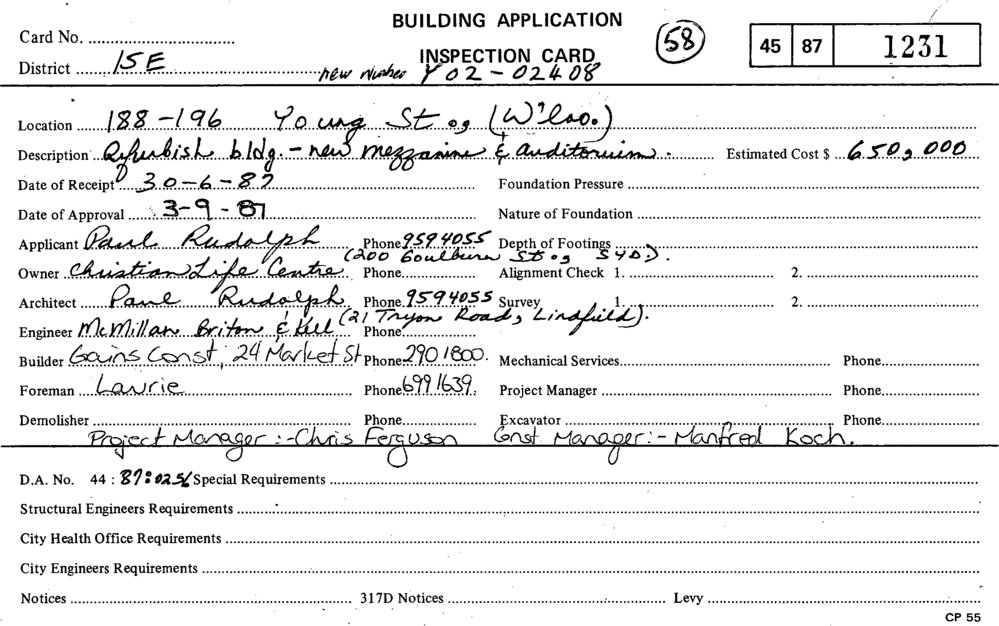 BUILDING APPLICATION
Card No. (58) 45 87 1231
INSPECTION CARD
District 15E new number Y02-02408
Location 188-196 Young St og (W'loo.)
Description Refurbish bldg. - new mezzanine & auditorium. Estimated Cost $ 650,000
Date of Receipt 30-6-87 Foundation Pressure
Date of Approval 3-9-87 Nature of Foundation
Applicant Paul Rudolph Phone 9594055 Depth of Footings
(200 Goulburn St og SYD.).
Owner Christian Life Centre Phone Alignment Check 1. 2.
Architect Paul Rudolph Phone 9594055 Survey 1. 2.
(21 Tryon Road, Lindfield).
Engineer McMillan Briton & Kell Phone
Builder Gains Const, 24 Market St Phone 290 1800. Mechanical Services Phone
Foreman Laurie Phone 699 1639. Project Manager Phone
Demolisher Phone Excavator Phone
Project Manager :- Chris Ferguson Const Manager:- Manfred Koch.
D.A. No. 44 : 87:0256 Special Requirements
Structural Engineers Requirements
City Health Office Requirements
City Engineers Requirements
Notices 317D Notices Levy
CP 55